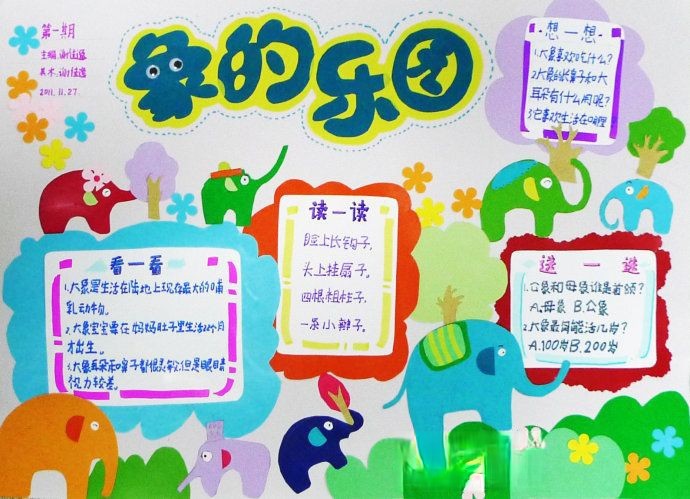 第一期
2011.11.27
象的乐园
·想一想·
1.大象喜欢吃什么?
2.大象的长鼻子和大
耳朵有什么用呢?
3.它喜欢生活在哪里
读一读
脸上长钩子,
头上挂扇子,
四根粗柱子,
一条小辫子。
看一看
1.大象是生活在陆地上现存最大的哺
乳动物。
2.大象宝宝要在妈妈肚子里生活22个月
才出生。
3.大象耳朵和鼻子都很灵敏,但是眼睛
视力较差。
选一选
1.公象和母象谁是首领?
A.母象 B.公象
2.大象最同能活几岁?
A.100岁 B.200岁